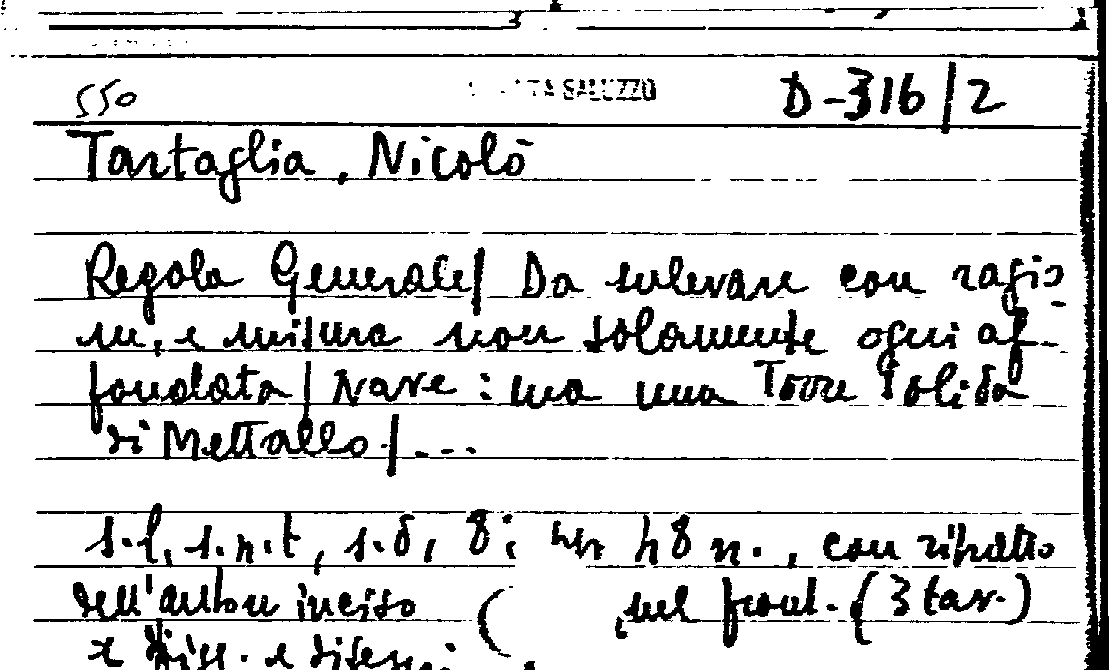 550 SALUZZO D-316/2
Tartaglia, Nicolò
Regola Generale/ Da sulevare con ragio
ne, e misura non solamente ogni af-
fondata/ Nave: ma una Torre Solida
di Mettallo/...
s.l, s.n.t, s.d, 8; 48 n., con ritratto
dell'autore inciso ( nel front. (3 tav.)
e disegni